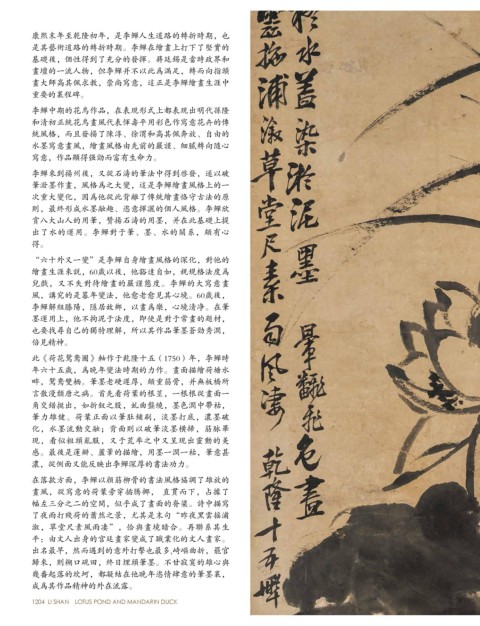 康熙末年至乾隆初年，是李鱓人生道路的轉折時期，也
是其藝術道路的轉折時期。李鱓在繪畫上打下了堅實的
基礎後，個性得到了充分的發揮。蔣廷錫是當時政界和
畫壇的一流人物，但李鱓并不以此為滿足，轉而向指頭
畫大師高其佩求教，崇尚寫意，這正是李鱓繪畫生涯中
重要的里程碑。
李鱓中期的花鳥作品，在表現形式上都表現出明代孫隆
和清初正統花鳥畫風代表惲壽平用彩色作寫意花卉的傳
統風格，而且發揚了陳淳、徐渭和高其佩奔放、自由的
水墨寫意畫風，繪畫風格由先前的嚴謹、細膩轉向隨心
寫意，作品顯得強勁而富有生命力。
李鱓來到揚州後，又從石濤的筆法中得到啓發，遂以破
筆潑墨作畫，風格為之大變，這是李鱓繪畫風格上的一
次重大變化，因為他從此背離了傳統繪畫恪守古法的原
則，最終形成水墨融趣、恣意揮灑的個人風格。李鱓欣
賞八大山人的用筆，贊揚石濤的用墨，并在此基礎上提
出了水的運用。李鱓對于筆、墨、水的關系，頗有心
得。
“六十外又一變”是李鱓自身繪畫風格的深化，對他的
繪畫生涯來説，60歲以後，他豁達自如，視規格法度為
兒戲，又不失對待繪畫的嚴謹態度。李鱓的大寫意畫
風，講究的是暮年變法，他愈老愈見其心境。60歲後，
李鱓解組滕陽，隱居故鄉，以畫為樂，心境清净。在筆
墨運用上，他不拘泥于法度，即使是對于常畫的題材，
也要找尋自己的獨特理解，所以其作品筆墨蒼勁秀潤，
倍見精神。
此《荷花鴛鴦圖》軸作于乾隆十五（1750）年，李鱓時
年六十五歲，為晚年變法時期的力作。畫面描繪荷塘水
畔，鴛鴦雙栖。筆墨老硬渾厚，頗重筋骨，并無板橋所
言散漫頹唐之病。首先看荷葉的根莖，一根根從畫面一
角交錯挺出，如折釵之股，虬曲盤繞，墨色潤中帶枯，
筆力雄健。荷葉正面以筆肚傾刷，淡墨打底，濃墨破
化，水墨流動交融；背面則以破筆淡墨橫掃，筋脉畢
現，看似粗頭亂服，又于荒率之中又呈現出靈動的美
感。最後是蓮瓣、蘆葦的描繪，用墨一潤一枯，筆意甚
濃，從側面又能反映出李鱓深厚的書法功力。
在落款方面，李鱓以顔筋柳骨的書法風格協調了雄放的
畫風，從寫意的荷葉旁穿插騰挪，直貫而下，占據了
幅左三分之二的空間，似乎成了畫面的脊梁。詩中描寫
了夜雨打殘荷的蕭然之景，尤其是末句“昨夜黑雲掭浦
漵，草堂尺素風雨凄”，恰與畫境暗合。再聯系其生
平：由文人出身的宮廷畫家變成了職業化的文人畫家。
出名最早，然而遇到的意外打擊也最多，崎嶇曲折，罷官
歸來，則糊口硯田，終日埋頭筆墨。不甘寂寞的雄心與
幾番起落的坎坷，都凝結在他晚年恣情肆意的筆墨裏，
成為其作品精神的外在流露。
水蓋染淤泥墨 暈翻飛色畫
浦漵草堂尺素雨風凄 乾隆十五年
1204 LI SHAN LOTUS POND AND MANDARIN DUCK